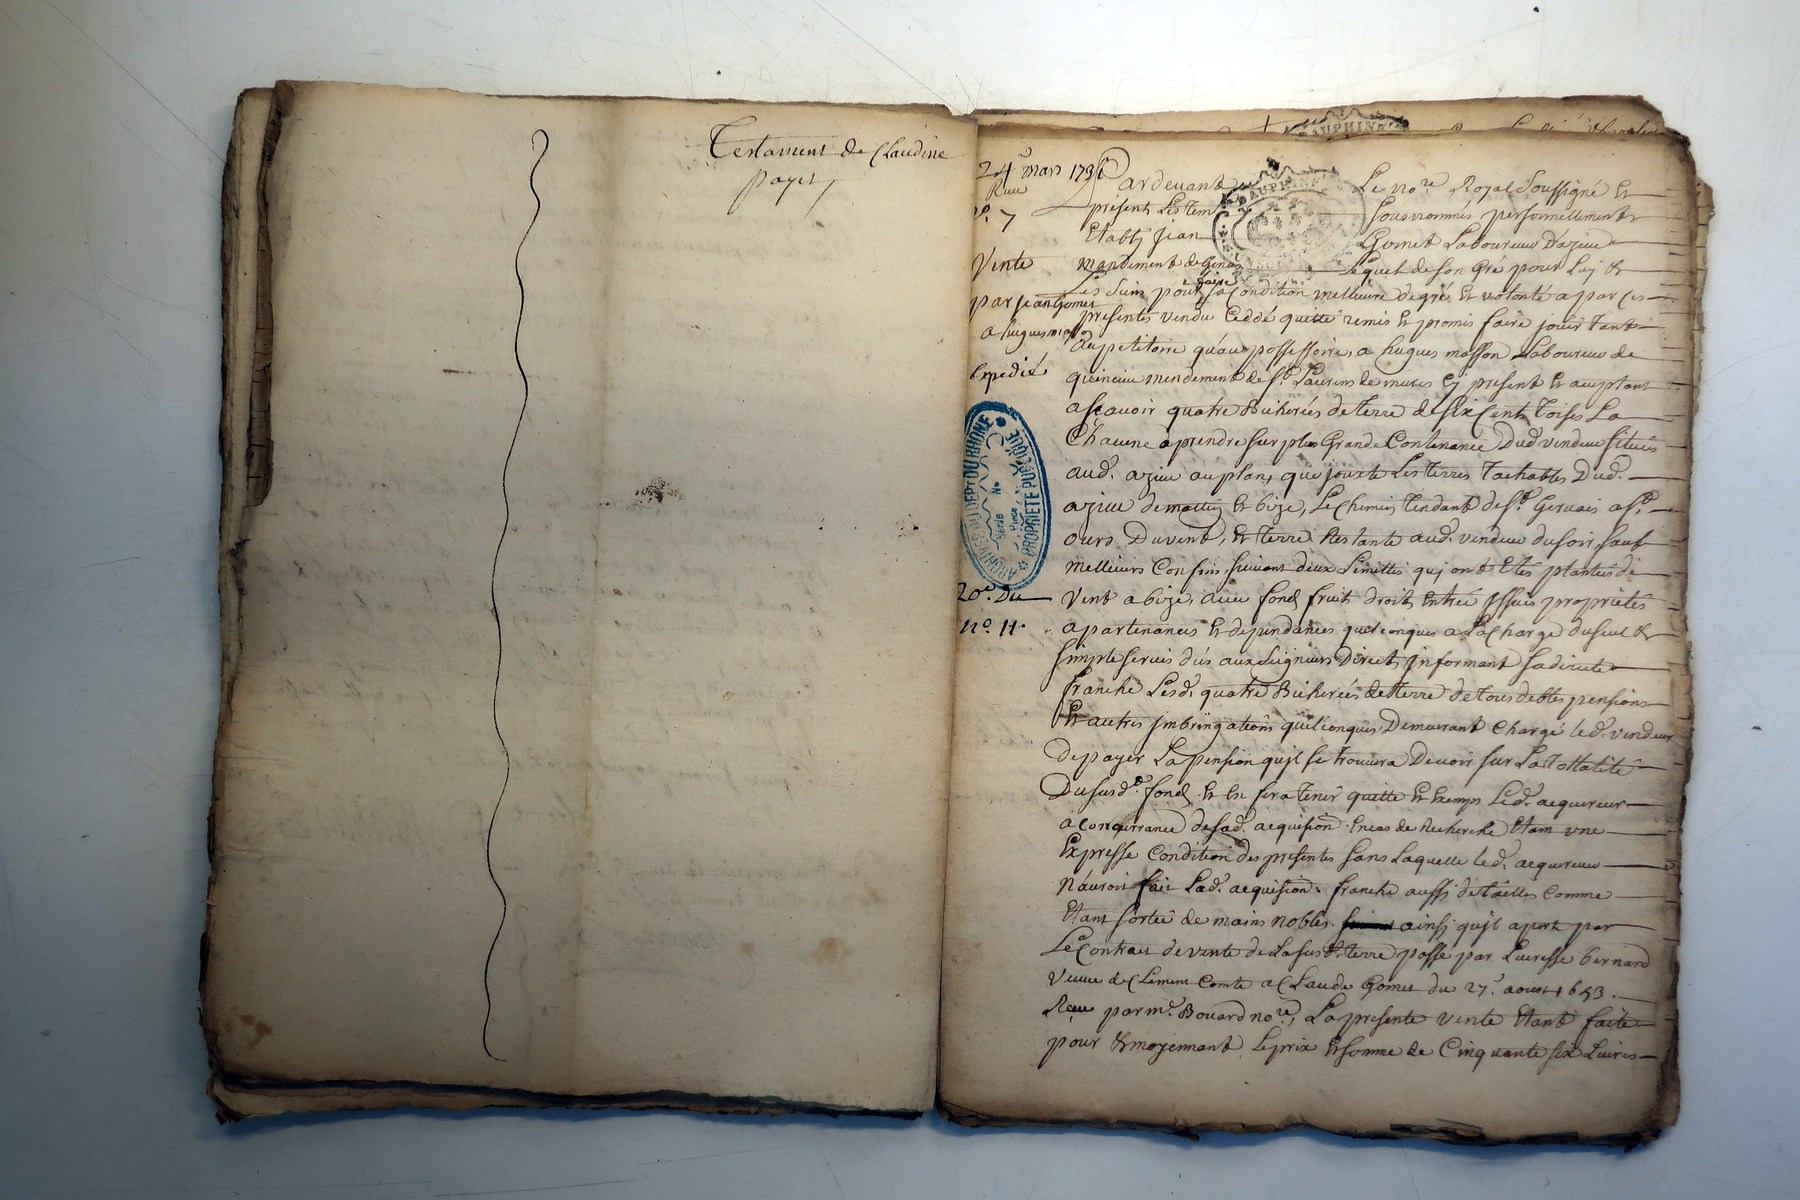 Testament de Claudine
payet
DAUPHINE
24e mars 1736
Reçu
no. 7
Vente
par jean Gomet
a hugues
Expedié
ARCHIVES DU DEPT DU RHONE
Série No
Pièce
PROPRIETE PUBLIQUE
20e. Du
no. 11.
Pardevant Le nore Royal Soussigné et
present Les tem sousnommés personnellement
Etably jean Gomet Laboureur Dazieu
mandement de Genas Lequel de son Gré pour Luy et
Les Siens pour faire sa Condition meilleure degré et volonté a par ces
presentes vendu Ceddé quitté remis et promis faire jouir tant
au petitoire qu'au possessoire, a hugues masson Laboureur de
quincieu mendement de st. Laurens de mures cy present et aceptant
asçavoir quatre Bicherées de terre de six Cents Toises La
Chacune a prendre sur plus Grande Contenance Dud. vendeur situés
aud. azieu au plan, que jouxte Les terres Tachables Dud.
azieu de matin et bize, Le Chemin tendant de st. Gervais a st.
ours Du vent, et terre Restante aud. vendeur du soir, sauf
meilleurs Confins suivant deux Limittes qui ont Etés plantées de
vent a bize, avec fond fruits droits Entrée issues proprietés
apartenances et dependances quelconques a La Charge du seul et
simple servis dûs aux seigneurs Directs, informant sa directe
franche Lesd. quatre Bicherées de terre de tous debtes pensions
et autres imbringations quelconques Demeurant Chargé led. vendeur
de payer La pension quil se trouvera Devoir sur La Tottalité
Du susd. fond et en fera tenir quitte et Exemps Led. acquereur
a concurrance de sad. acquision en cas de Recherche Etant une
Expresse Condition des presentes sans Laquelle led. acquereur
n'auroit fait Lad. acquision. franche aussy de tailles Comme
Etant sortie de mains nobles ainsy quil apert par
Le Contrat de vente de La susd. terre passé par Lucresse bernard
veuve de Clement Comte a Claude Gomet du 27e. aoust 1653.
Reçu par me. Bouard nore, La presente vente Etant faite
pour et moyennant Le prix et somme de Cinquante six Livres